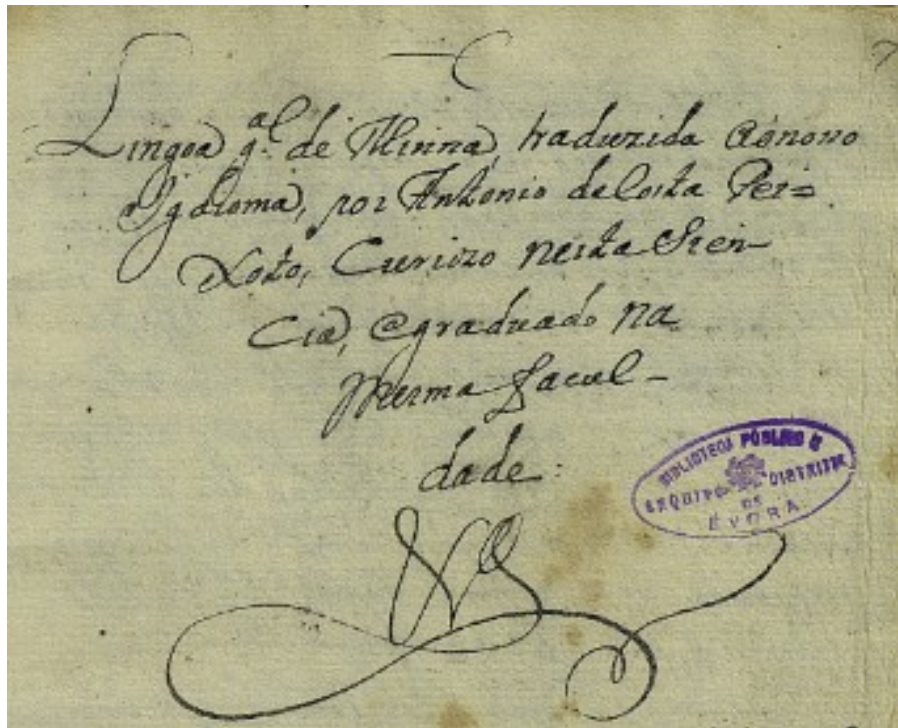 Lingoa g.al de Minna, traduzida ao nono
Ygdioma, por Antonio da Costa Pei=
xoto, Curiozo nesta Sien-
Cia, e graduado na
Mesma facul-
dade:
BIBLIOTECA PÚBLICA E
ARQUIVO DISTRITAL
DE
ÉVORA